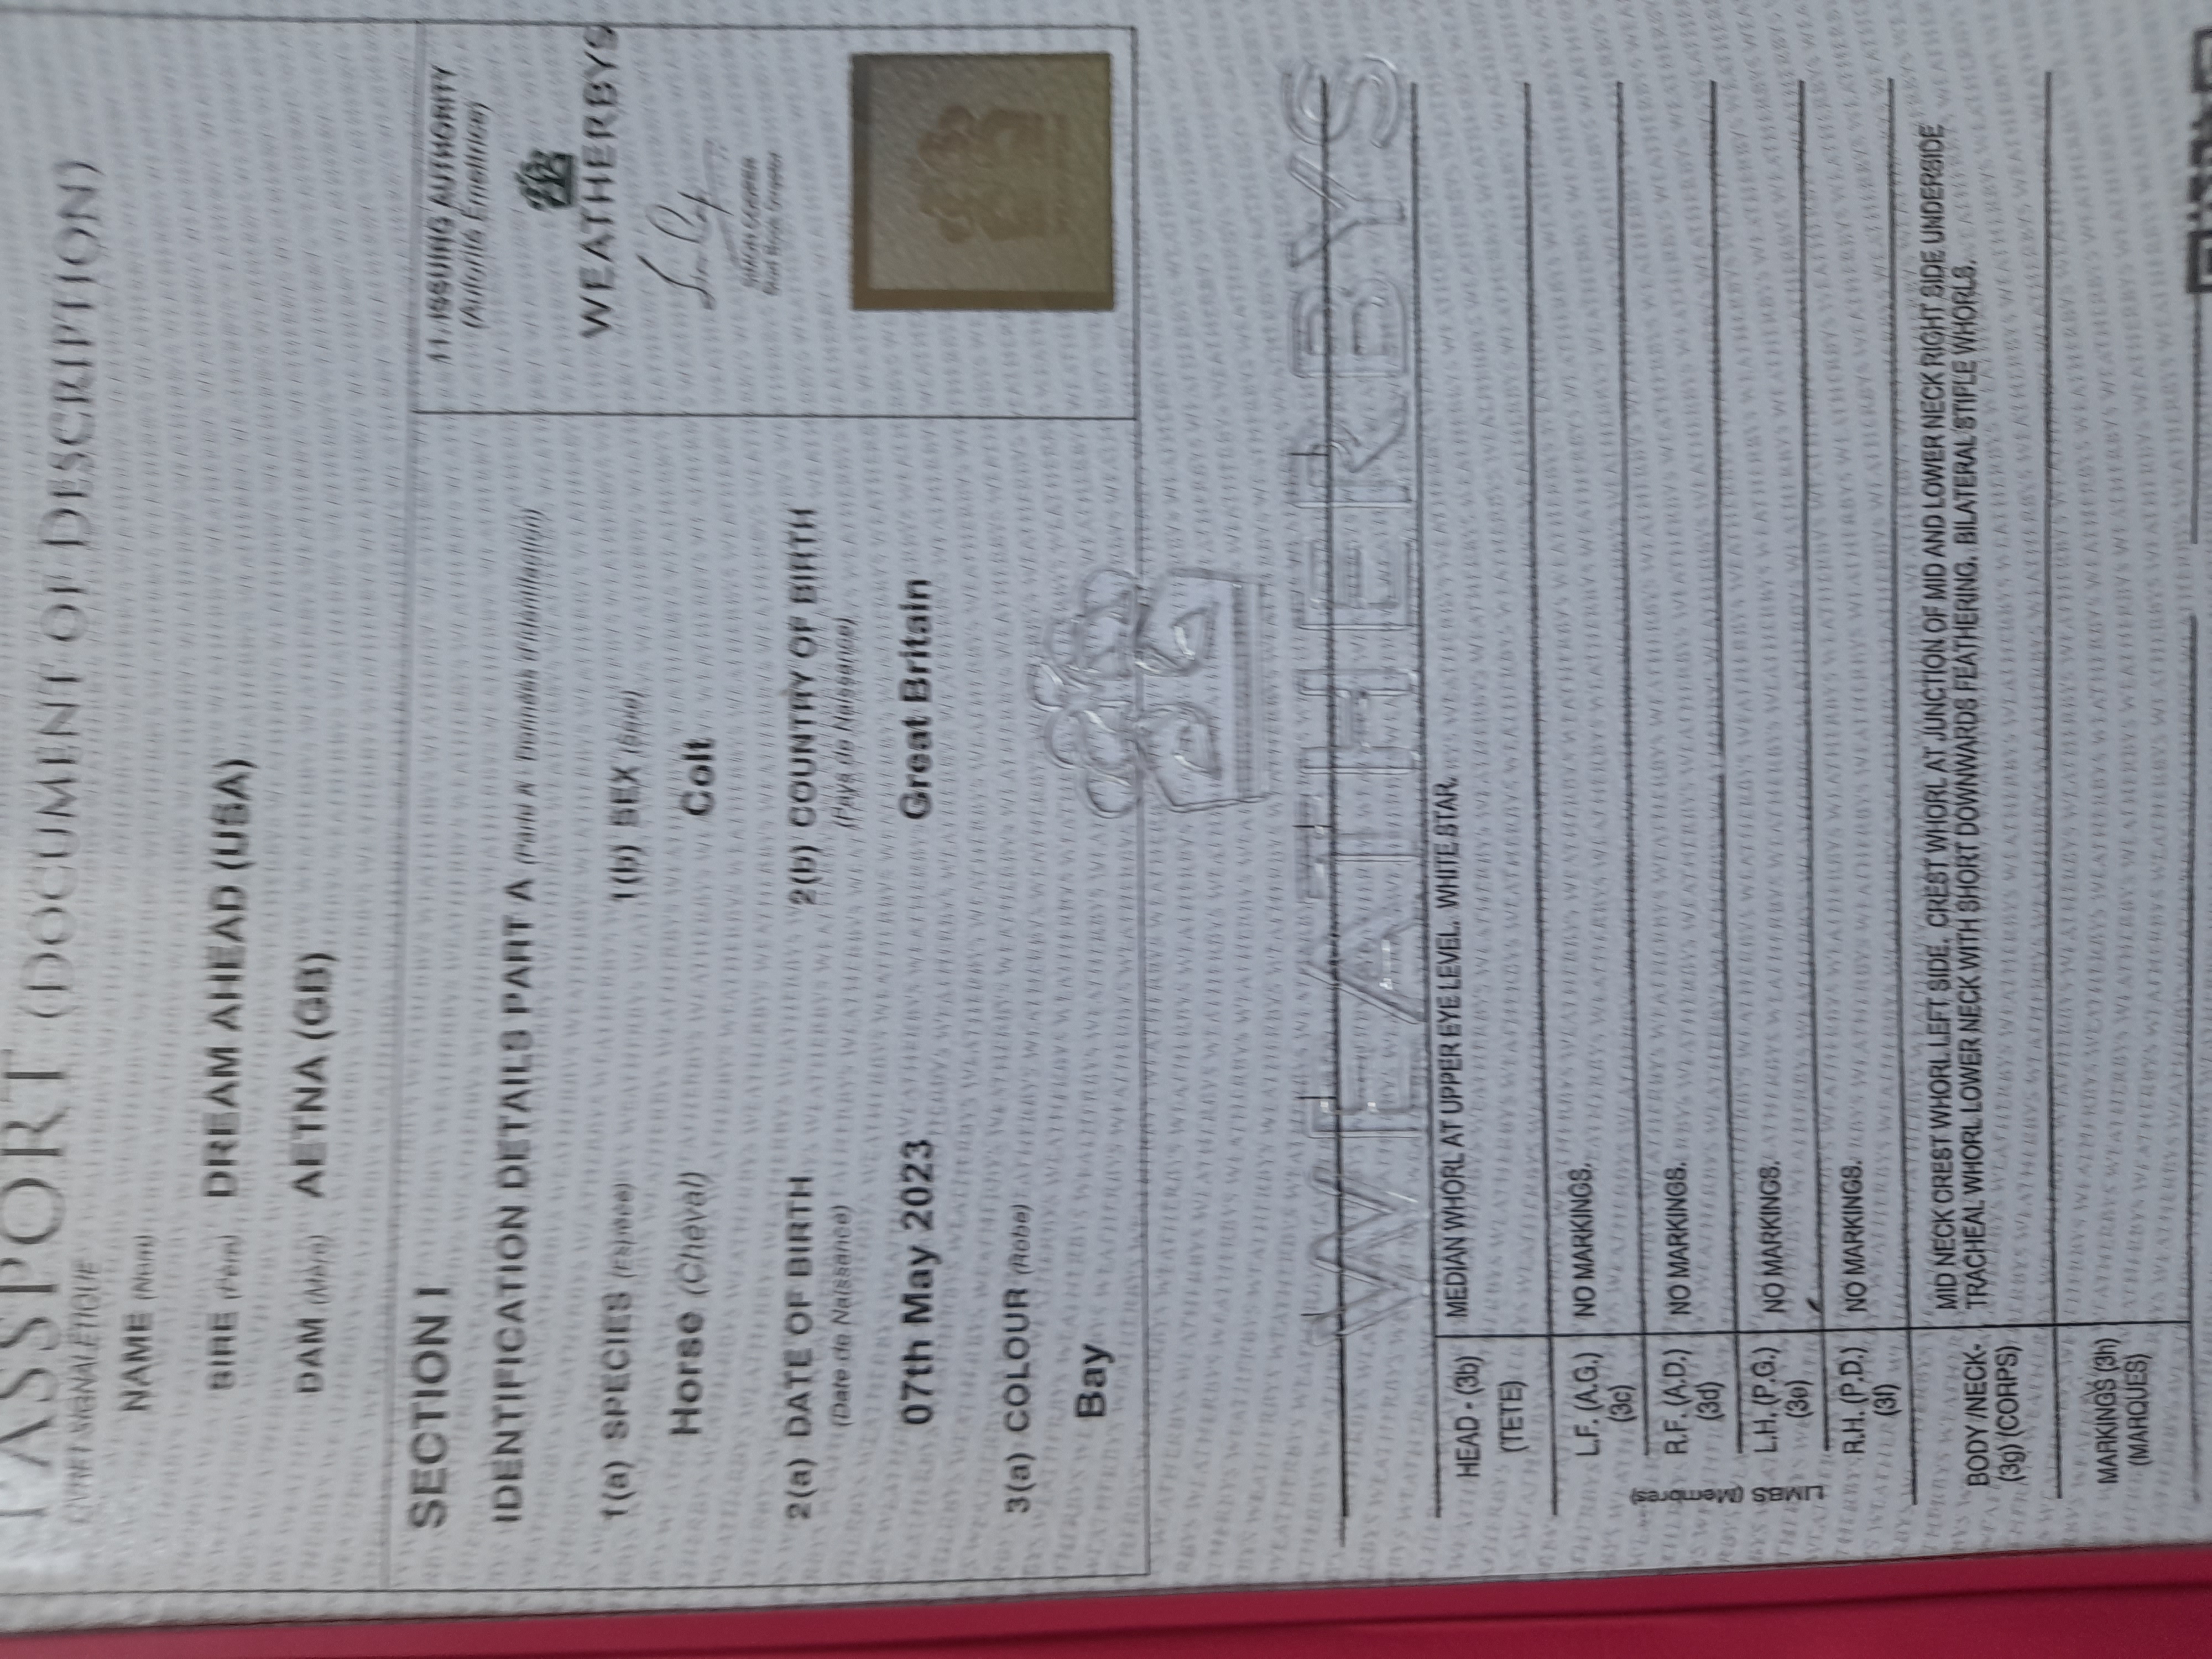 PASSPORT (DOCUMENT OF DESCRIPTION)
SIGNALETIQUE
NAME (Nom)
SIRE (Père) DREAM AHEAD (USA)
DAM (Mère) AETNA (GB)
SECTION I
IDENTIFICATION DETAILS PART A (Partie A Données d'Identification)
1(a) SPECIES (Espèce)
Horse (Cheval)
1(b) SEX (Sexe)
Colt
2(a) DATE OF BIRTH
(Date de Naissance)
07th May 2023
2(b) COUNTRY OF BIRTH
(Pays de Naissance)
Great Britain
3(a) COLOUR (Robe)
Bay
11. ISSUING AUTHORITY
(Autorité Emettrice)
WEATHERBYS
WEATHERBYS
HEAD - (3b)
(TETE)
MEDIAN WHORL AT UPPER EYE LEVEL. WHITE STAR.
LIMBS (Membres)
L.F. (A.G.)
(3c)
NO MARKINGS.
R.F. (A.D.)
(3d)
NO MARKINGS.
L.H. (P.G.)
(3e)
NO MARKINGS.
R.H. (P.D.)
(3f)
NO MARKINGS.
BODY /NECK-
(3g) (CORPS)
MID NECK CREST WHORL LEFT SIDE. CREST WHORL AT JUNCTION OF MID AND LOWER NECK RIGHT SIDE. UNDERSIDE
TRACHEAL WHORL LOWER NECK WITH SHORT DOWNWARDS FEATHERING. BILATERAL STIFLE WHORLS.
MARKINGS (3h)
(MARQUES)